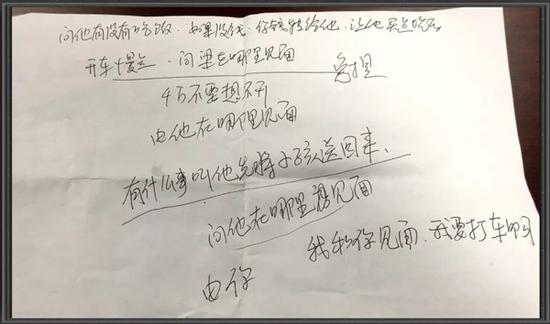 问他有没有吃饭.如果没钱.你钱转给他.让他买点吃的
开车慢点.问梁在哪里见面
4万不要想不开
由他在哪里见面
有什么事叫他先将小孩送回来、
问他在哪里见面
我和你见面.我要打车吗
由你